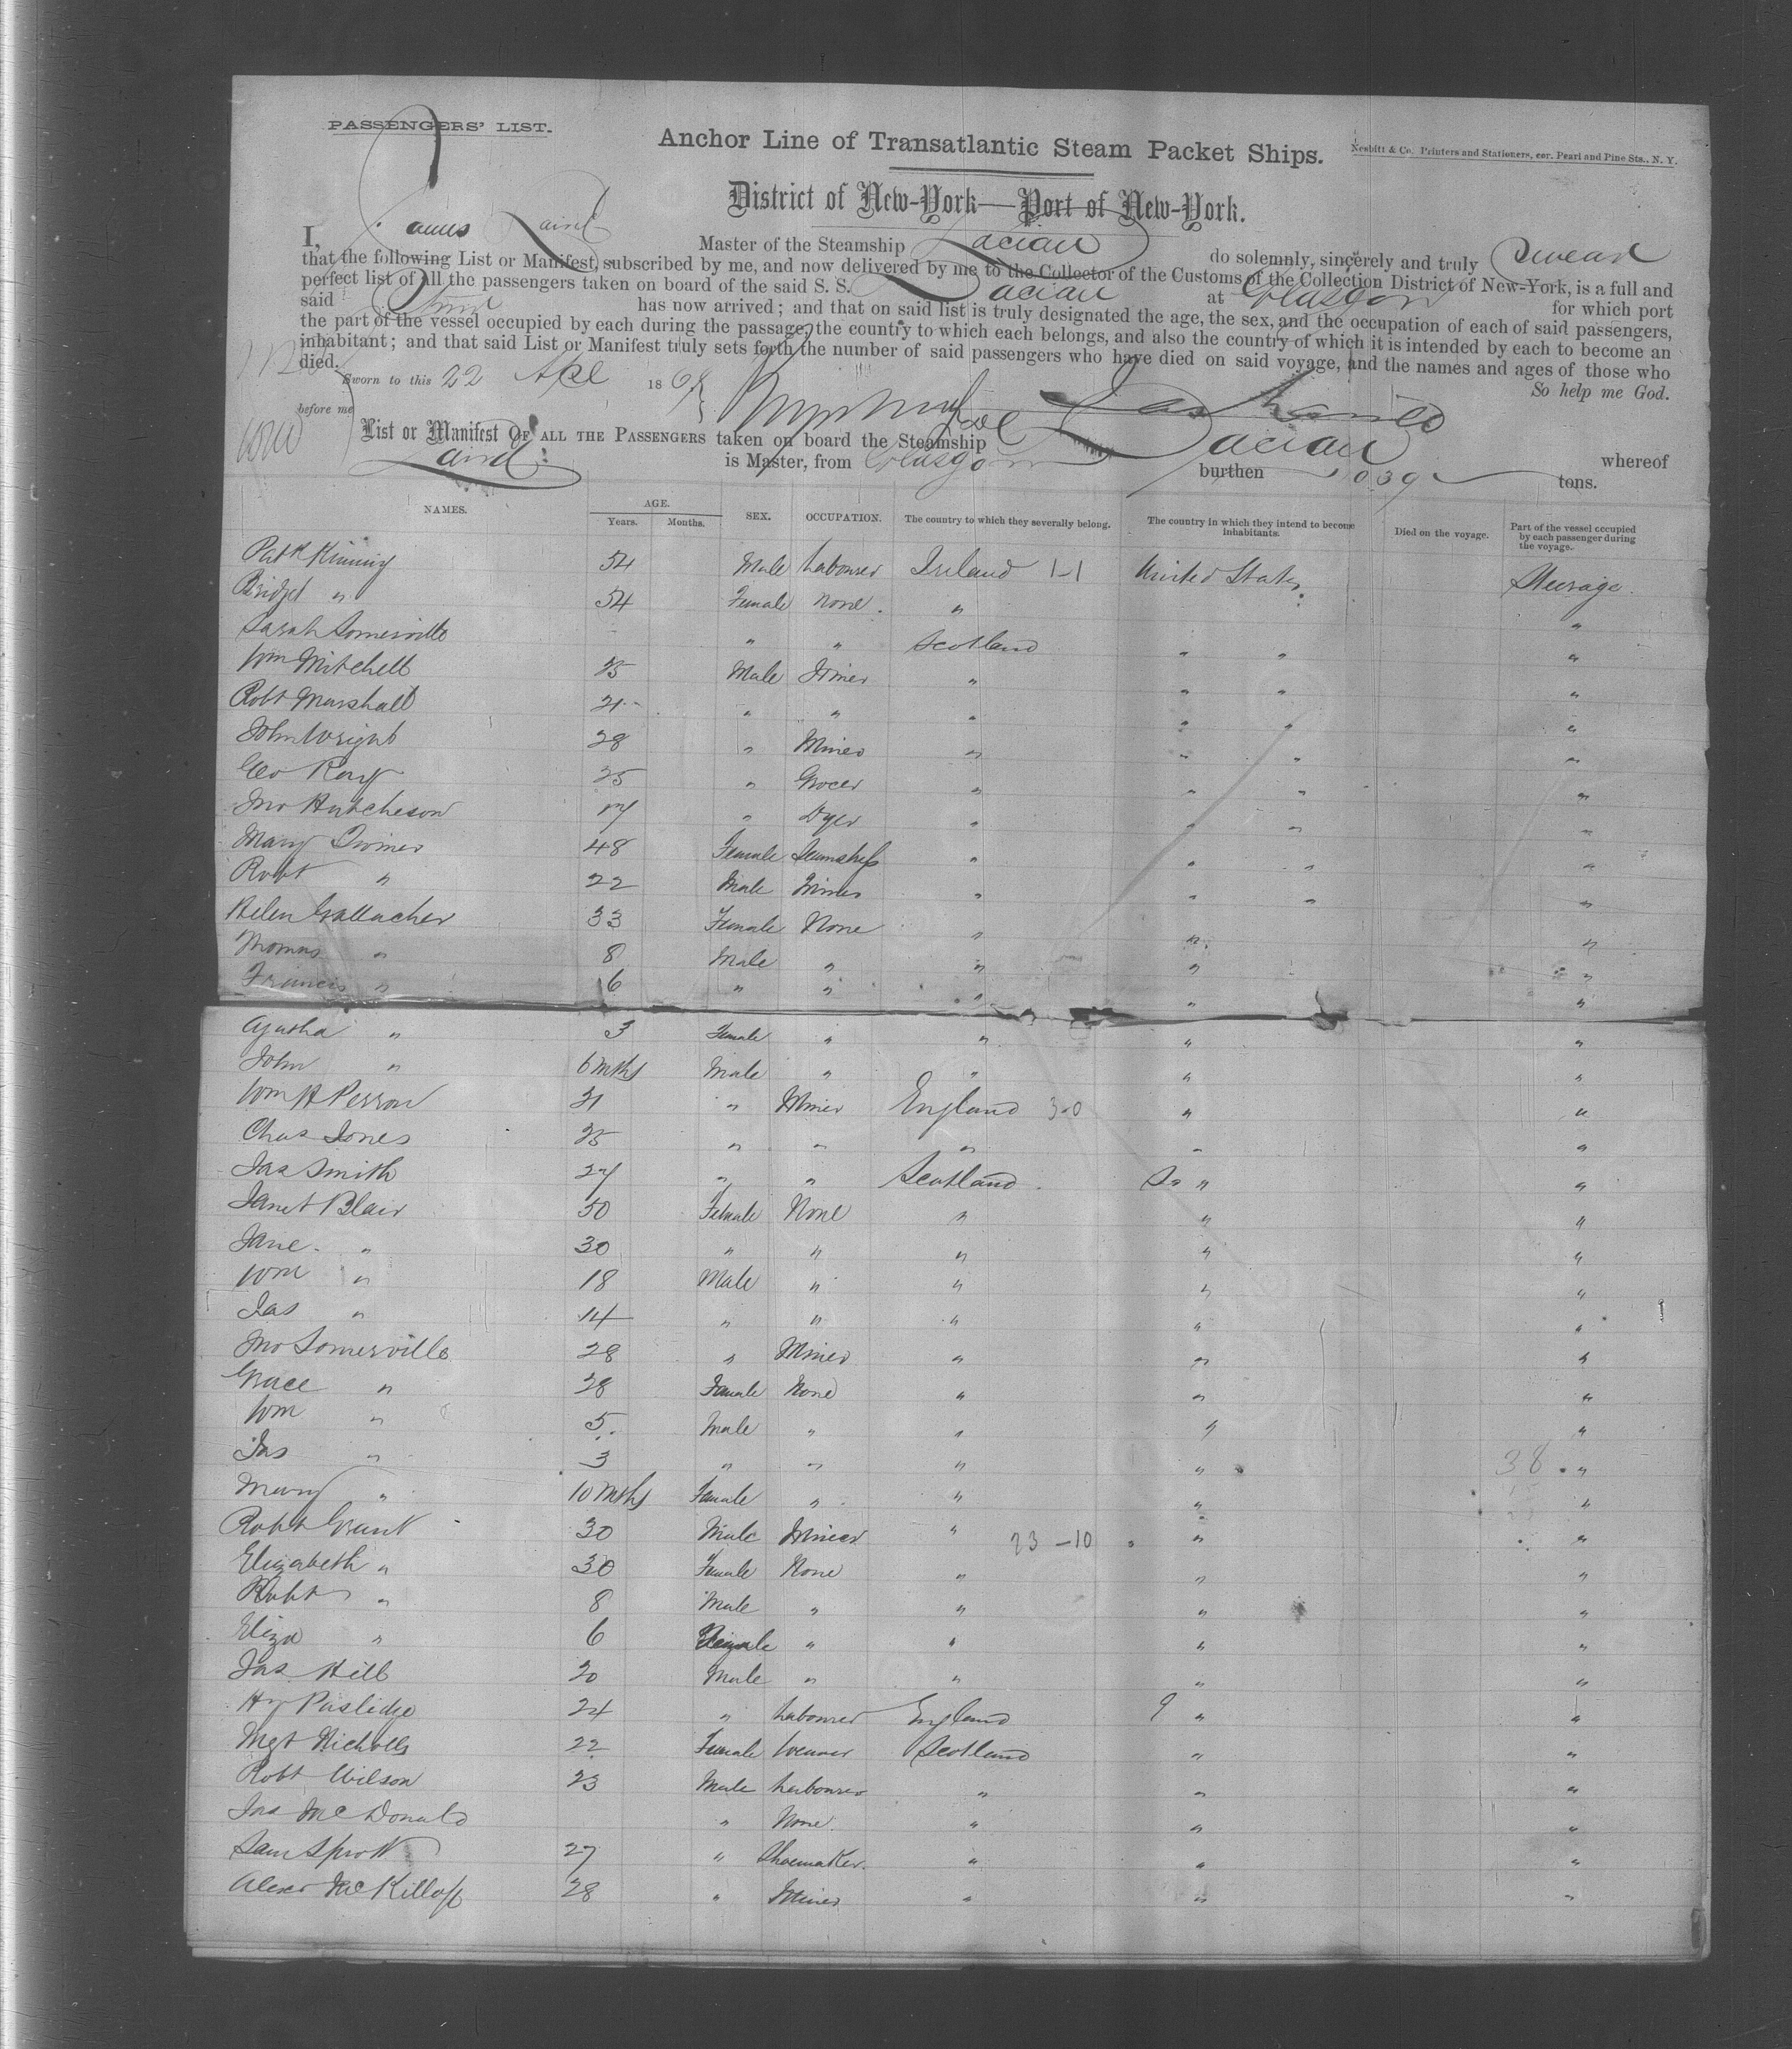 PASSENGERS' LIST.
Anchor Line of Transatlantic Steam Packet Ships.
Nesbitt & Co. Printers and Stationers, cor. Pearl and Pine Sts., N. Y.
District of New-York—Port of New-York.
I, James Laird Master of the Steamship Dacian do solemnly, sincerely and truly Swear
that the following List or Manifest, subscribed by me, and now delivered by me to the Collector of the Customs of the Collection District of New-York, is a full and
perfect list of all the passengers taken on board of the said S. S. Dacian at Glasgow for which port
said has now arrived; and that on said list is truly designated the age, the sex, and the occupation of each of said passengers,
the part of the vessel occupied by each during the passage, the country to which each belongs, and also the country of which it is intended by each to become an
inhabitant; and that said List or Manifest truly sets forth the number of said passengers who have died on said voyage, and the names and ages of those who
died.
So help me God.
Sworn to this 22 Apl 186
before me
List or Manifest OF ALL THE PASSENGERS taken on board the Steamship Dacian whereof
Laird is Master, from Glasgow burthen 1039 tons.
NAMES. AGE. Years. Months. SEX. OCCUPATION. The country to which they severally belong. The country in which they intend to become inhabitants. Died on the voyage. Part of the vessel occupied by each passenger during the voyage.
Patk Kinning 54 Male Labourer Ireland 1-1 United States Steerage
Bridget " 54 Female None "  "
Sarah Somerville " " Scotland " " "
Wm Mitchell 25 Male " " " "
Robt Marshall 21 " " " " " "
John Wright 28 " Miner " " " "
Geo Kay 25 " Grocer " " " "
Jno Hutcheson 17 " Dyer " " " "
Mary 48 Female " " " "
Robt " 22 Male " " " "
Helen Gallacher 33 Female None " " "
Thomas " 8 Male " " " "
Francis " 6 " " " " "
Agatha " 3 Female " " " "
John " 6 mths Male " " " "
Wm H 21 " Miner England 3-0 " "
Chas Jones 25 " " " " "
Jas Smith 27 " " Scotland Do " "
Janet Blair 50 Female None " " "
Jane " 30 " " " " "
Wm " 18 Male " " " "
Jas " 14 " " " " "
Jno Somerville 28 " Miner " " "
Grace " 28 Female None " " "
Wm " 5 Male " " " "
Jas " 3 " " " " 38 "
Mary " 10 Mths Female " " " "
Robt Grant 30 Male Miner " 23-10 " "
Elizabeth " 30 Female None " " "
Robt " 8 Male " " " "
Eliza " 6 Female " " " "
Jas Hill 20 Male " " " "
Hy 24 " Labourer England 9 " "
Mgt Nicholls 22 Female Weaver Scotland " "
Robt Wilson 23 Male Labourer " " "
Jas McDonald " None " " "
Sam Sprott 27 " Shoemaker " " "
Alexr McKillop 28 " Miner " " "